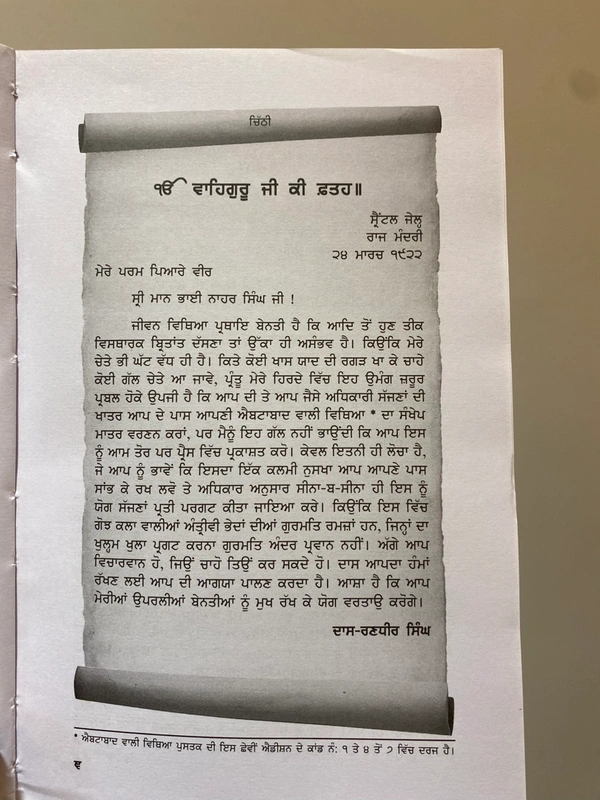 ਚਿੱਠੀ
ੴ ਵਾਹਿਗੁਰੂ ਜੀ ਕੀ ਫ਼ਤਹ॥
ਸ੍ਰੈਂਟਲ ਜੇਲ੍ਹ
ਰਾਜ ਮੰਦਰੀ
੨੪ ਮਾਰਚ ੧੯੨੨
ਮੇਰੇ ਪਰਮ ਪਿਆਰੇ ਵੀਰ
ਸ੍ਰੀ ਮਾਨ ਭਾਈ ਨਾਹਰ ਸਿੰਘ ਜੀ !
ਜੀਵਨ ਵਿਥਿਆ ਪ੍ਰਥਾਇ ਬੇਨਤੀ ਹੈ ਕਿ ਆਦਿ ਤੋਂ ਹੁਣ ਤੀਕ
ਵਿਸਥਾਰਕ ਬ੍ਰਿਤਾਂਤ ਦੱਸਣਾ ਤਾਂ ਉੱਕਾ ਹੀ ਅਸੰਭਵ ਹੈ। ਕਿਉਂਕਿ ਮੇਰੇ
ਚੇਤੇ ਭੀ ਘੱਟ ਵੱਧ ਹੀ ਹੈ। ਕਿਤੇ ਕੋਈ ਖਾਸ ਯਾਦ ਦੀ ਰਗੜ ਖਾ ਕੇ ਚਾਹੇ
ਕੋਈ ਗੱਲ ਚੇਤੇ ਆ ਜਾਵੇ, ਪ੍ਰੰਤੂ ਮੇਰੇ ਹਿਰਦੇ ਵਿੱਚ ਇਹ ਉਮੰਗ ਜ਼ਰੂਰ
ਪ੍ਰਬਲ ਹੋਕੇ ਉਪਜੀ ਹੈ ਕਿ ਆਪ ਦੀ ਤੇ ਆਪ ਜੈਸੇ ਅਧਿਕਾਰੀ ਸੱਜਣਾਂ ਦੀ
ਖਾਤਰ ਆਪ ਦੇ ਪਾਸ ਆਪਣੀ ਐਬਟਾਬਾਦ ਵਾਲੀ ਵਿਥਿਆ * ਦਾ ਸੰਖੇਪ
ਮਾਤਰ ਵਰਣਨ ਕਰਾਂ, ਪਰ ਮੈਨੂੰ ਇਹ ਗੱਲ ਨਹੀਂ ਭਾਉਂਦੀ ਕਿ ਆਪ ਇਸ
ਨੂੰ ਆਮ ਤੋਰ ਪਰ ਪ੍ਰੈਸ ਵਿੱਚ ਪ੍ਰਕਾਸ਼ਤ ਕਰੋ। ਕੇਵਲ ਇਤਨੀ ਹੀ ਲੋਚਾ ਹੈ,
ਜੇ ਆਪ ਨੂੰ ਭਾਵੇਂ ਕਿ ਇਸਦਾ ਇੱਕ ਕਲਮੀ ਨੁਸਖਾ ਆਪ ਆਪਣੇ ਪਾਸ
ਸਾਂਭ ਕੇ ਰਖ ਲਵੋ ਤੇ ਅਧਿਕਾਰ ਅਨੁਸਾਰ ਸੀਨਾ-ਬ-ਸੀਨਾ ਹੀ ਇਸ ਨੂੰ
ਯੋਗ ਸੱਜਣਾਂ ਪ੍ਰਤੀ ਪਰਗਟ ਕੀਤਾ ਜਾਇਆ ਕਰੇ। ਕਿਉਂਕਿ ਇਸ ਵਿੱਚ
ਗੋਝ ਕਲਾ ਵਾਲੀਆਂ ਅੰਤ੍ਰੀਵੀ ਭੇਦਾਂ ਦੀਆਂ ਗੁਰਮਤਿ ਰਮਜ਼ਾਂ ਹਨ, ਜਿਨ੍ਹਾਂ ਦਾ
ਖੁਲ੍ਹਮ ਖੁਲਾ ਪ੍ਰਗਟ ਕਰਨਾ ਗੁਰਮਤਿ ਅੰਦਰ ਪ੍ਰਵਾਨ ਨਹੀਂ। ਅੱਗੇ ਆਪ
ਵਿਚਾਰਵਾਨ ਹੋ, ਜਿਉਂ ਚਾਹੋ ਤਿਉਂ ਕਰ ਸਕਦੇ ਹੋ। ਦਾਸ ਆਪਦਾ ਹੰਮਾਂ
ਰੱਖਣ ਲਈ ਆਪ ਦੀ ਆਗਯਾ ਪਾਲਣ ਕਰਦਾ ਹੈ। ਆਸ਼ਾ ਹੈ ਕਿ ਆਪ
ਮੇਰੀਆਂ ਉਪਰਲੀਆਂ ਬੇਨਤੀਆਂ ਨੂੰ ਮੁਖ ਰੱਖ ਕੇ ਯੋਗ ਵਰਤਾਉ ਕਰੋਗੇ।
ਦਾਸ-ਰਣਧੀਰ ਸਿੰਘ
* ਐਬਟਾਬਾਦ ਵਾਲੀ ਵਿਥਿਆ ਪੁਸਤਕ ਦੀ ਇਸ ਛੇਵੀਂ ਐਡੀਸ਼ਨ ਦੇ ਕਾਂਡ ਨੰ: ੧ ਤੇ ੪ ਤੋਂ ੭ ਵਿੱਚ ਦਰਜ ਹੈ।